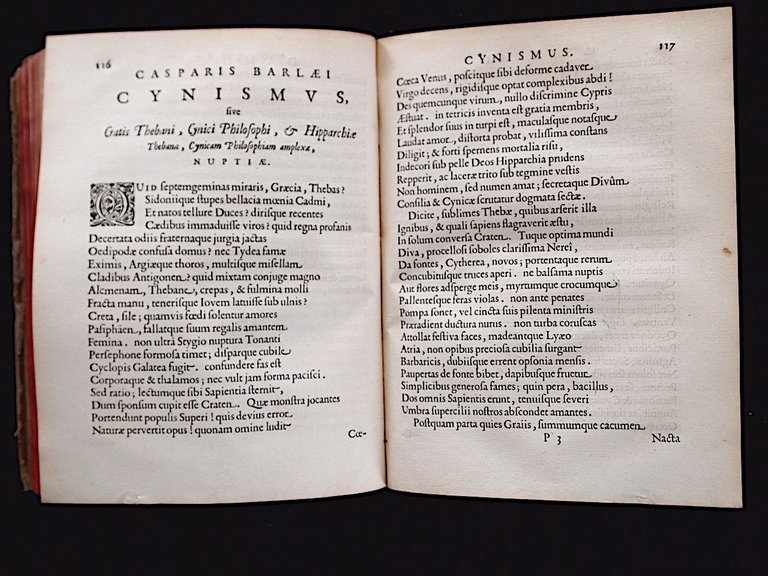 116
CASPARIS BARLÆI
CYNISMVS,
sive
Gatis Thebani, Cynici Philosophi, & Hipparchiæ
Thebanæ, Cynicam Philosophiam amplexæ,
NUPTIÆ.
QUID septemgeminas miraris, Græcia, Thebas?
Sidoniique stupes bellacia mœnia Cadmi,
Et natos tellure Duces? dirisque recentes
Cædibus immaduisse viros? quid regna profanis
Decertata odiis fraternaque jurgia jactas
Oedipodæ confusa domus? nec Tydea famæ
Eximis, Argiæque thoros, multisque misellam
Cladibus Antigonen? quid mixtam conjuge magno
Alcmenam, Thebane, crepas, & fulmina molli
Fracta manu, tenerisque Iovem latuisse sub ulnis?
Creta, sile; quamvis fœdi solentur amores
Pasiphäen, fallatque suum regalis amantem
Femina. non ultra Stygio nuptura Tonanti
Persephone formosa timet; disparque cubile
Cyclopis Galatea fugit. confundere fas est
Corporaque & thalamos; nec vult jam forma pacisci.
Sed ratio; lectumque sibi Sapientia sternit,
Dum sponsum cupit esse Craten. Quæ monstra jocantes
Portendunt populis Superi! quis devius error
Naturæ pervertit opus! quonam omine ludit
Cœ-
CYNISMUS.
117
Cœca Venus, poscitque sibi deforme cadaver
Virgo decens, rigidisque optat complexibus abdi!
Des quemcunque virum, nullo discrimine Cypris
Æstuat. in tetricis inventa est gratia membris,
Et splendor suus in turpi est, maculasque notasque
Laudat amor, distorta probat, vilissima constans
Diligit; & forti spernens mortalia risu,
Indecori sub pelle Deos Hipparchia prudens
Repperit, ac laceræ trito sub tegmine vestis
Non hominem, sed numen amat; secretaque Divûm
Consilia & Cynicæ scrutatur dogmata sectæ.
Dicite, sublimes Thebæ, quibus arserit illa
Ignibus, & quali sapiens flagraverit æstu,
In solum conversa Craten. Tuque optima mundi
Diva, procellosi soboles clarissima Nereï,
Da fontes, Cytherea, novos; portentaque rerum
Concubitusque truces aperi. ne balsama nuptis
Aut flores adsperge meis, myrtumque crocumque
Pallentesque feras violas. non ante penates
Pompa sonet, vel cincta suis pilenta ministris
Prætadient ductura nurus. non turba coruscas
Attollat festiva faces, madeantque Lyæo
Atria, non opibus preciosa cubilia surgant
Barbaricis, dubiisque errent opsonia mensis.
Paupertas de fonte bibet, dapibusque fruetur
Simplicibus generosa fames; quin pera, bacillus,
Dos omnis Sapientis erunt, tenuisque severi
Umbra supercilii nostros abscondet amantes.
Postquam parta quies Graiis, summumque cacumen
P 3
Nacta